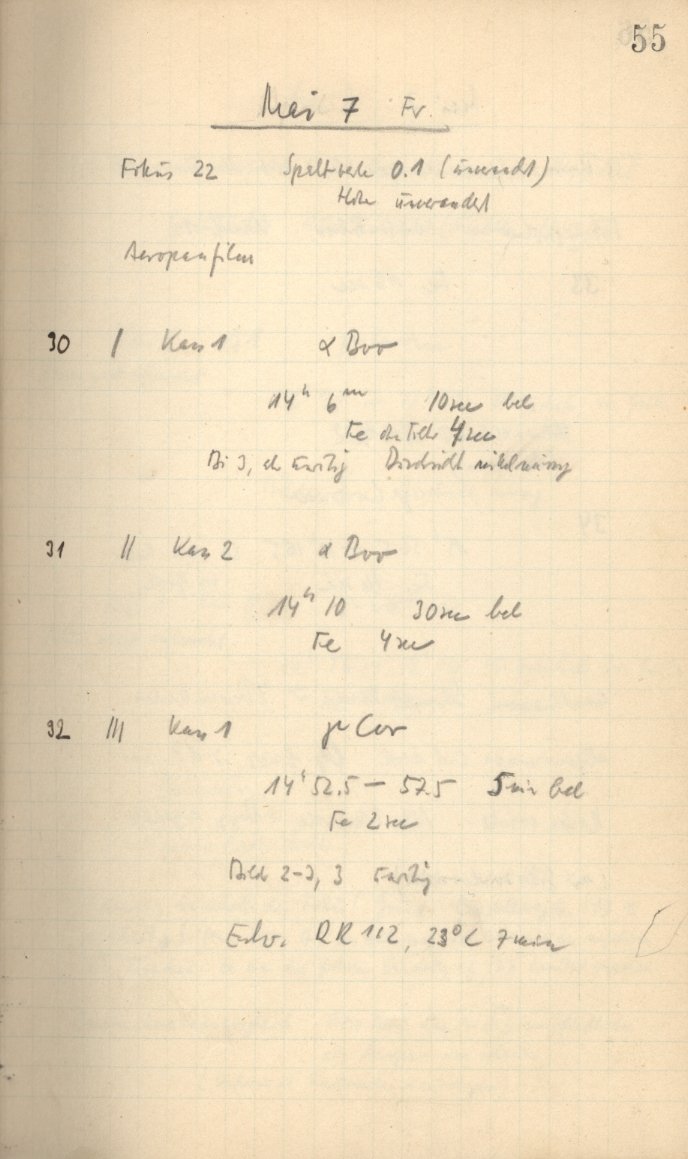 55
Mai 7 Fr.
Fokus 22 Spaltweite 0.1 (unverändt)
Höhe unverändert
Aeropanfilm
30 I Kass 1 α Boo
14h 6m 10 sec bel
Fe 4 sec
Bi 3, unruhig
31 II Kass 2 α Boo
14h 10 30 sec bel
Fe 4 sec
32 III Kass 1 Cor
14h 52.5 – 57.5 5 min bel
Fe 2 sec
Bild 2–3, 3 unruhig
Entw. 1:2, 23° C 7 min